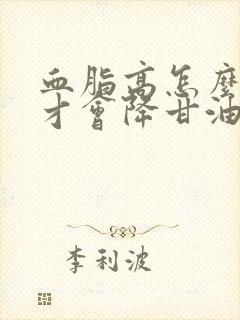 血脂高怎麼
才會降甘油
李利波